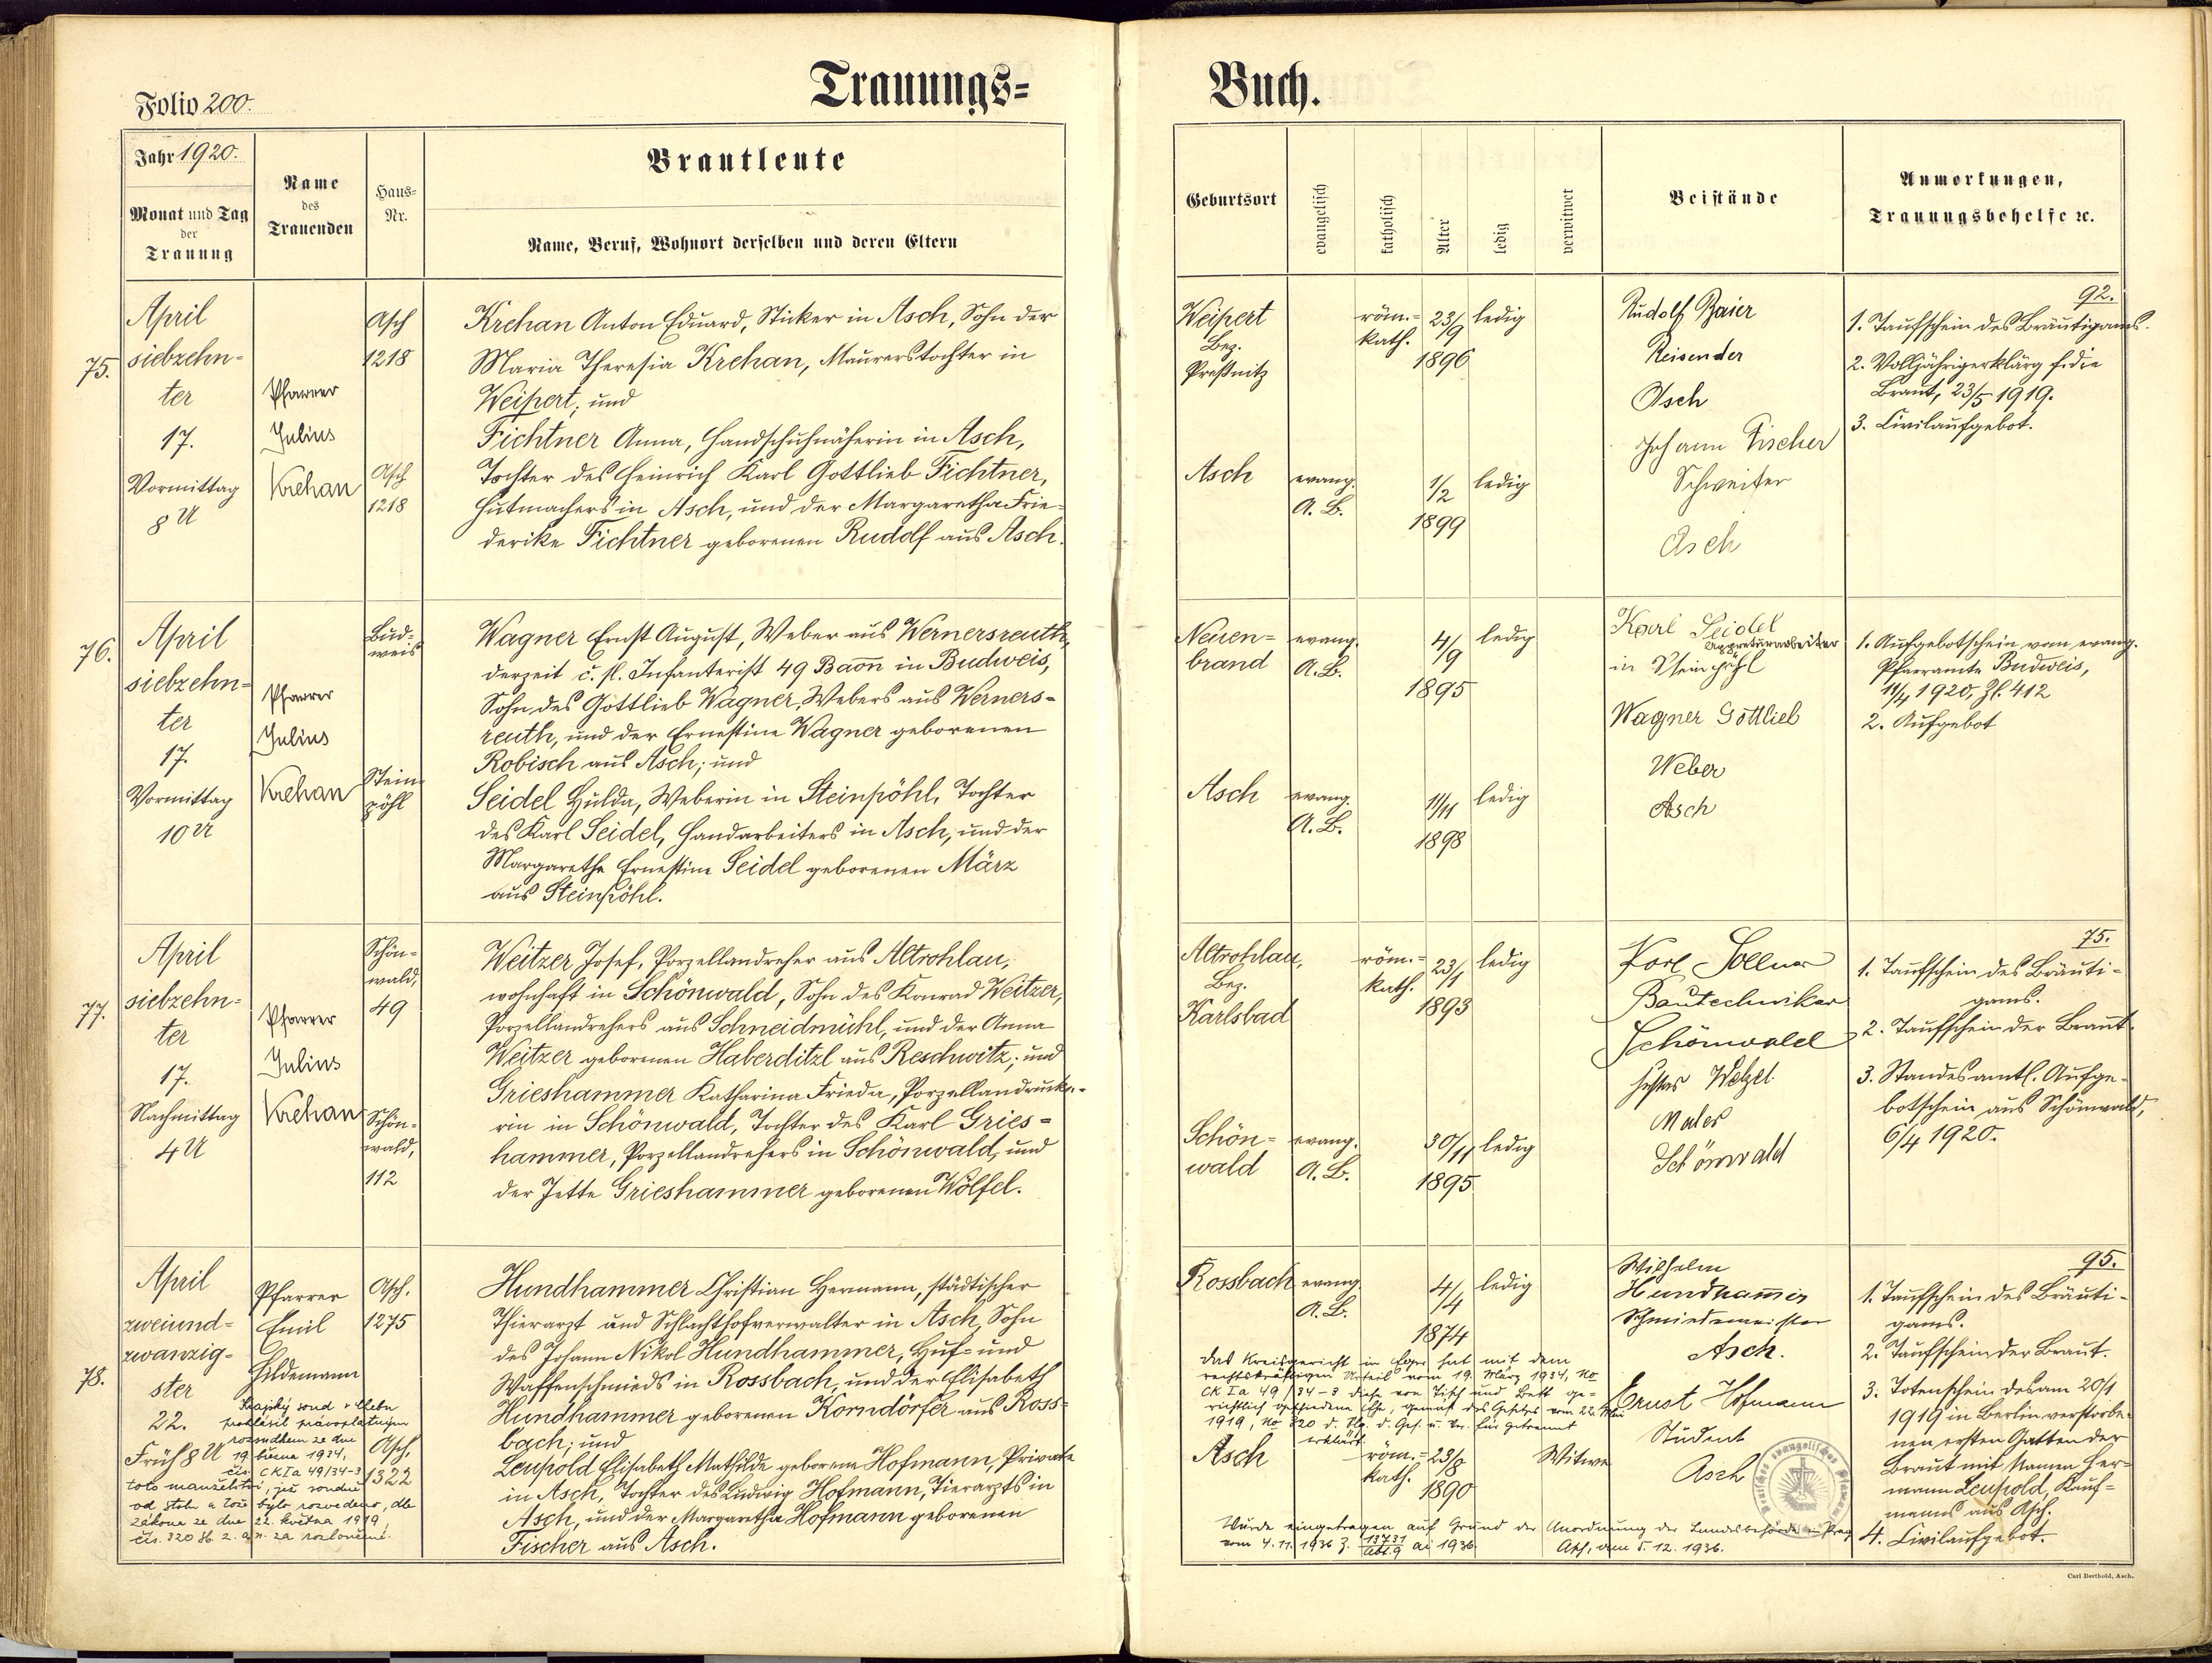 Trauungs=
Buch.
Folio 200.
Jahr 1920.
Monat und Tag
der
Trauung
Name
des
Trauenden
Haus=
Nr.
Brautleute
Name, Beruf, Wohnort derselben und deren Eltern
Geburtsort
evangelisch
katholisch
Alter
ledig
verwitwet
Beistände
Anmerkungen,
Trauungsbehelfe ꝛc.
75.
April
siebzehn-
ter
17.
Vormittag
8 U
Pfarrer
Julius
Krehan
Asch
1218
Asch
1218
Krehan Anton Eduard, Sticker in Asch, Sohn der
Maria Theresia Krehan, Maurerstochter in
Weipert; und
Fichtner Anna, Handschuhnäherin in Asch,
Tochter des Heinrich Karl Gottlieb Fichtner,
Hutmachers in Asch, und der Margaretha Frie-
derike Fichtner geborenen Rudolf aus Asch.
Weipert
Bez.
Preßnitz
röm.=
kath.
23/9
1896
ledig
Asch
evang.
A. B.
1/2
1899
ledig
Rudolf Baier
Reisender
Asch
Johann Fischer
Asch
92.
1. Taufschein des Bräutigams.
2. Volljährigerklärg f. die
Braut, 23/5 1919.
3. Civilaufgebot.
76.
April
siebzehn-
ter
17.
Vormittag
10 U
Pfarrer
Julius
Krehan
Bud=
weis
Stein-
pöhl
Wagner Ernst August, Weber aus Wernersreuth,
derzeit č. sl. Infanterist 49 Baon in Budweis,
Sohn des Gottlieb Wagner, Webers aus Werners-
reuth, und der Ernestine Wagner geborenen
Robisch aus Asch; und
Seidel Hulda, Weberin in Steinpöhl, Tochter
des Karl Seidel, Handarbeiters in Asch, und der
Margaretha Ernestine Seidel geborenen März
aus Steinpöhl.
Neuen=
brand
evang.
A. B.
4/9
1895
ledig
Asch
evang.
A. B.
11/11
1898
ledig
Karl Seidel
Appreturarbeiter
in Steinpöhl
Wagner Gottlieb
Weber
Asch
1. Aufgebotschein vom evang.
Pfarramte Budweis,
11/4 1920, Zl. 412
2. Aufgebot
77.
April
siebzehn=
ter
17.
Nachmittag
4 U
Pfarrer
Julius
Krehan
Schön=
wald,
49
Schön=
wald,
112
Weitzer Josef, Porzellandreher aus Altrohlau,
wohnhaft in Schönwald, Sohn des Konrad Weitzer,
Porzellandrehers aus Schneidmühl, und der Anna
Weitzer geborenen Haberditzl aus Reschwitz; und
Grieshammer Katharina Frieda, Porzellandrucke-
rin in Schönwald, Tochter des Karl Gries=
hammer, Porzellandrehers in Schönwald, und
der Jette Grieshammer geborenen Wölfel.
Altrohlau,
Bez.
Karlsbad
röm.=
kath.
23/1
1893
ledig
Schön=
wald
evang.
A. B.
30/11
1895
ledig
Bautechniker
Schönwald
Wetzel
Maler
Schönwald
75.
1. Taufschein des Bräuti-
gams.
2. Taufschein der Braut.
3. Standesamtl. Aufge-
botschein aus Schönwald,
6/4 1920.
78.
April
zweiund=
zwanzig=
ster
22.
Früh 8 U
Pfarrer
Emil
Hildemann
Asch.
1275
Asch,
1322
Krajský soud v Chebu
prohlásil právoplatným
rozsudkem ze dne
19. března 1934,
čís. CK Ia 49/34-3
toto manželství, již soudně
od stolu a lože bylo rozvedeno, dle
zákona ze dne 22. května 1919,
čís. 320 Sb. z. a n. za rozloučené.
Hundhammer Christian Hermann, städtischer
Thierarzt und Schlachthofverwalter in Asch, Sohn
des Johann Nikol Hundhammer, Huf= und
Waffenschmieds in Rossbach, und der Elisabeth
Hundhammer geborenen Korndörfer aus Ross=
bach; und
Leupold Elisabeth Mathilde geborene Hofmann, Private
in Asch, Tochter des Ludwig Hofmann, Tierarzts in
Asch, und der Margaretha Hofmann geborenen
Fischer aus Asch.
Rossbach
evang.
A. B.
4/4
1874
ledig
Das Kreisgericht in Eger hat mit dem
rechtskräftigen Urteil vom 19. März 1934, No
CK Ia 49/34-3 diese von Tisch und Bett ge-
richtlich geschiedene Ehe, gemäß des Gesetzes vom 22. Mai
1919, No 320 d. Slg. d. Ges. u. Vr. für getrennt
erklärt.
Asch
röm.=
kath.
23/8
1890
Witwe
Wurde eingetragen auf Grund der Anordnung der Landesbehörde in Prag
vom 4. 11. 1936 Z. 13731/Abt. 9 ai 1936.
Asch, am 5. 12. 1936.
Wilhelm
Hundhammer
Schmiedemeister
Asch.
Ernst Hofmann
Student
Asch
95.
1. Taufschein des Bräuti-
gams.
2. Taufschein der Braut.
3. Totenschein des am 20/1
1919 in Berlin verstorbe-
nen ersten Gatten der
Braut mit Namen Her-
mann Leupold, Kauf=
manns aus Asch.
4. Civilaufgebot.
Carl Berthold, Asch.